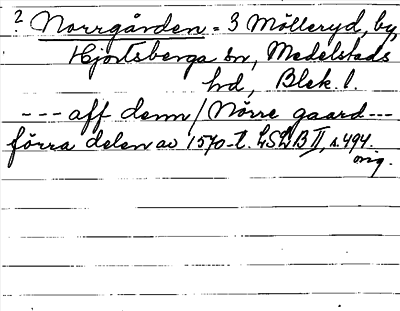 ? Norrgården = 3 Mölleryd, by,
Hjortsberga sn, Medelstads
hd, Blek. l.
--- aff denn / Nörre gaard ---
förra delen av 1570-t. LSLB II, s. 494.
orig.